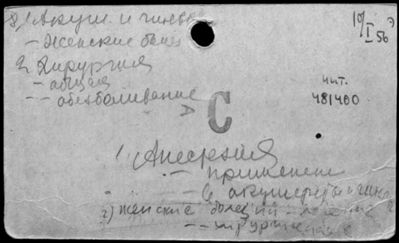 8) Акуш. и гинек
- женские болез
10/I 56 Э
2) Хирургия
- общая
-- обезболивание
чит.
481400
С
1) Анестезия
- применение
- в акушерстве и гинек
2) женские болезни - лечение
-- хирургическое